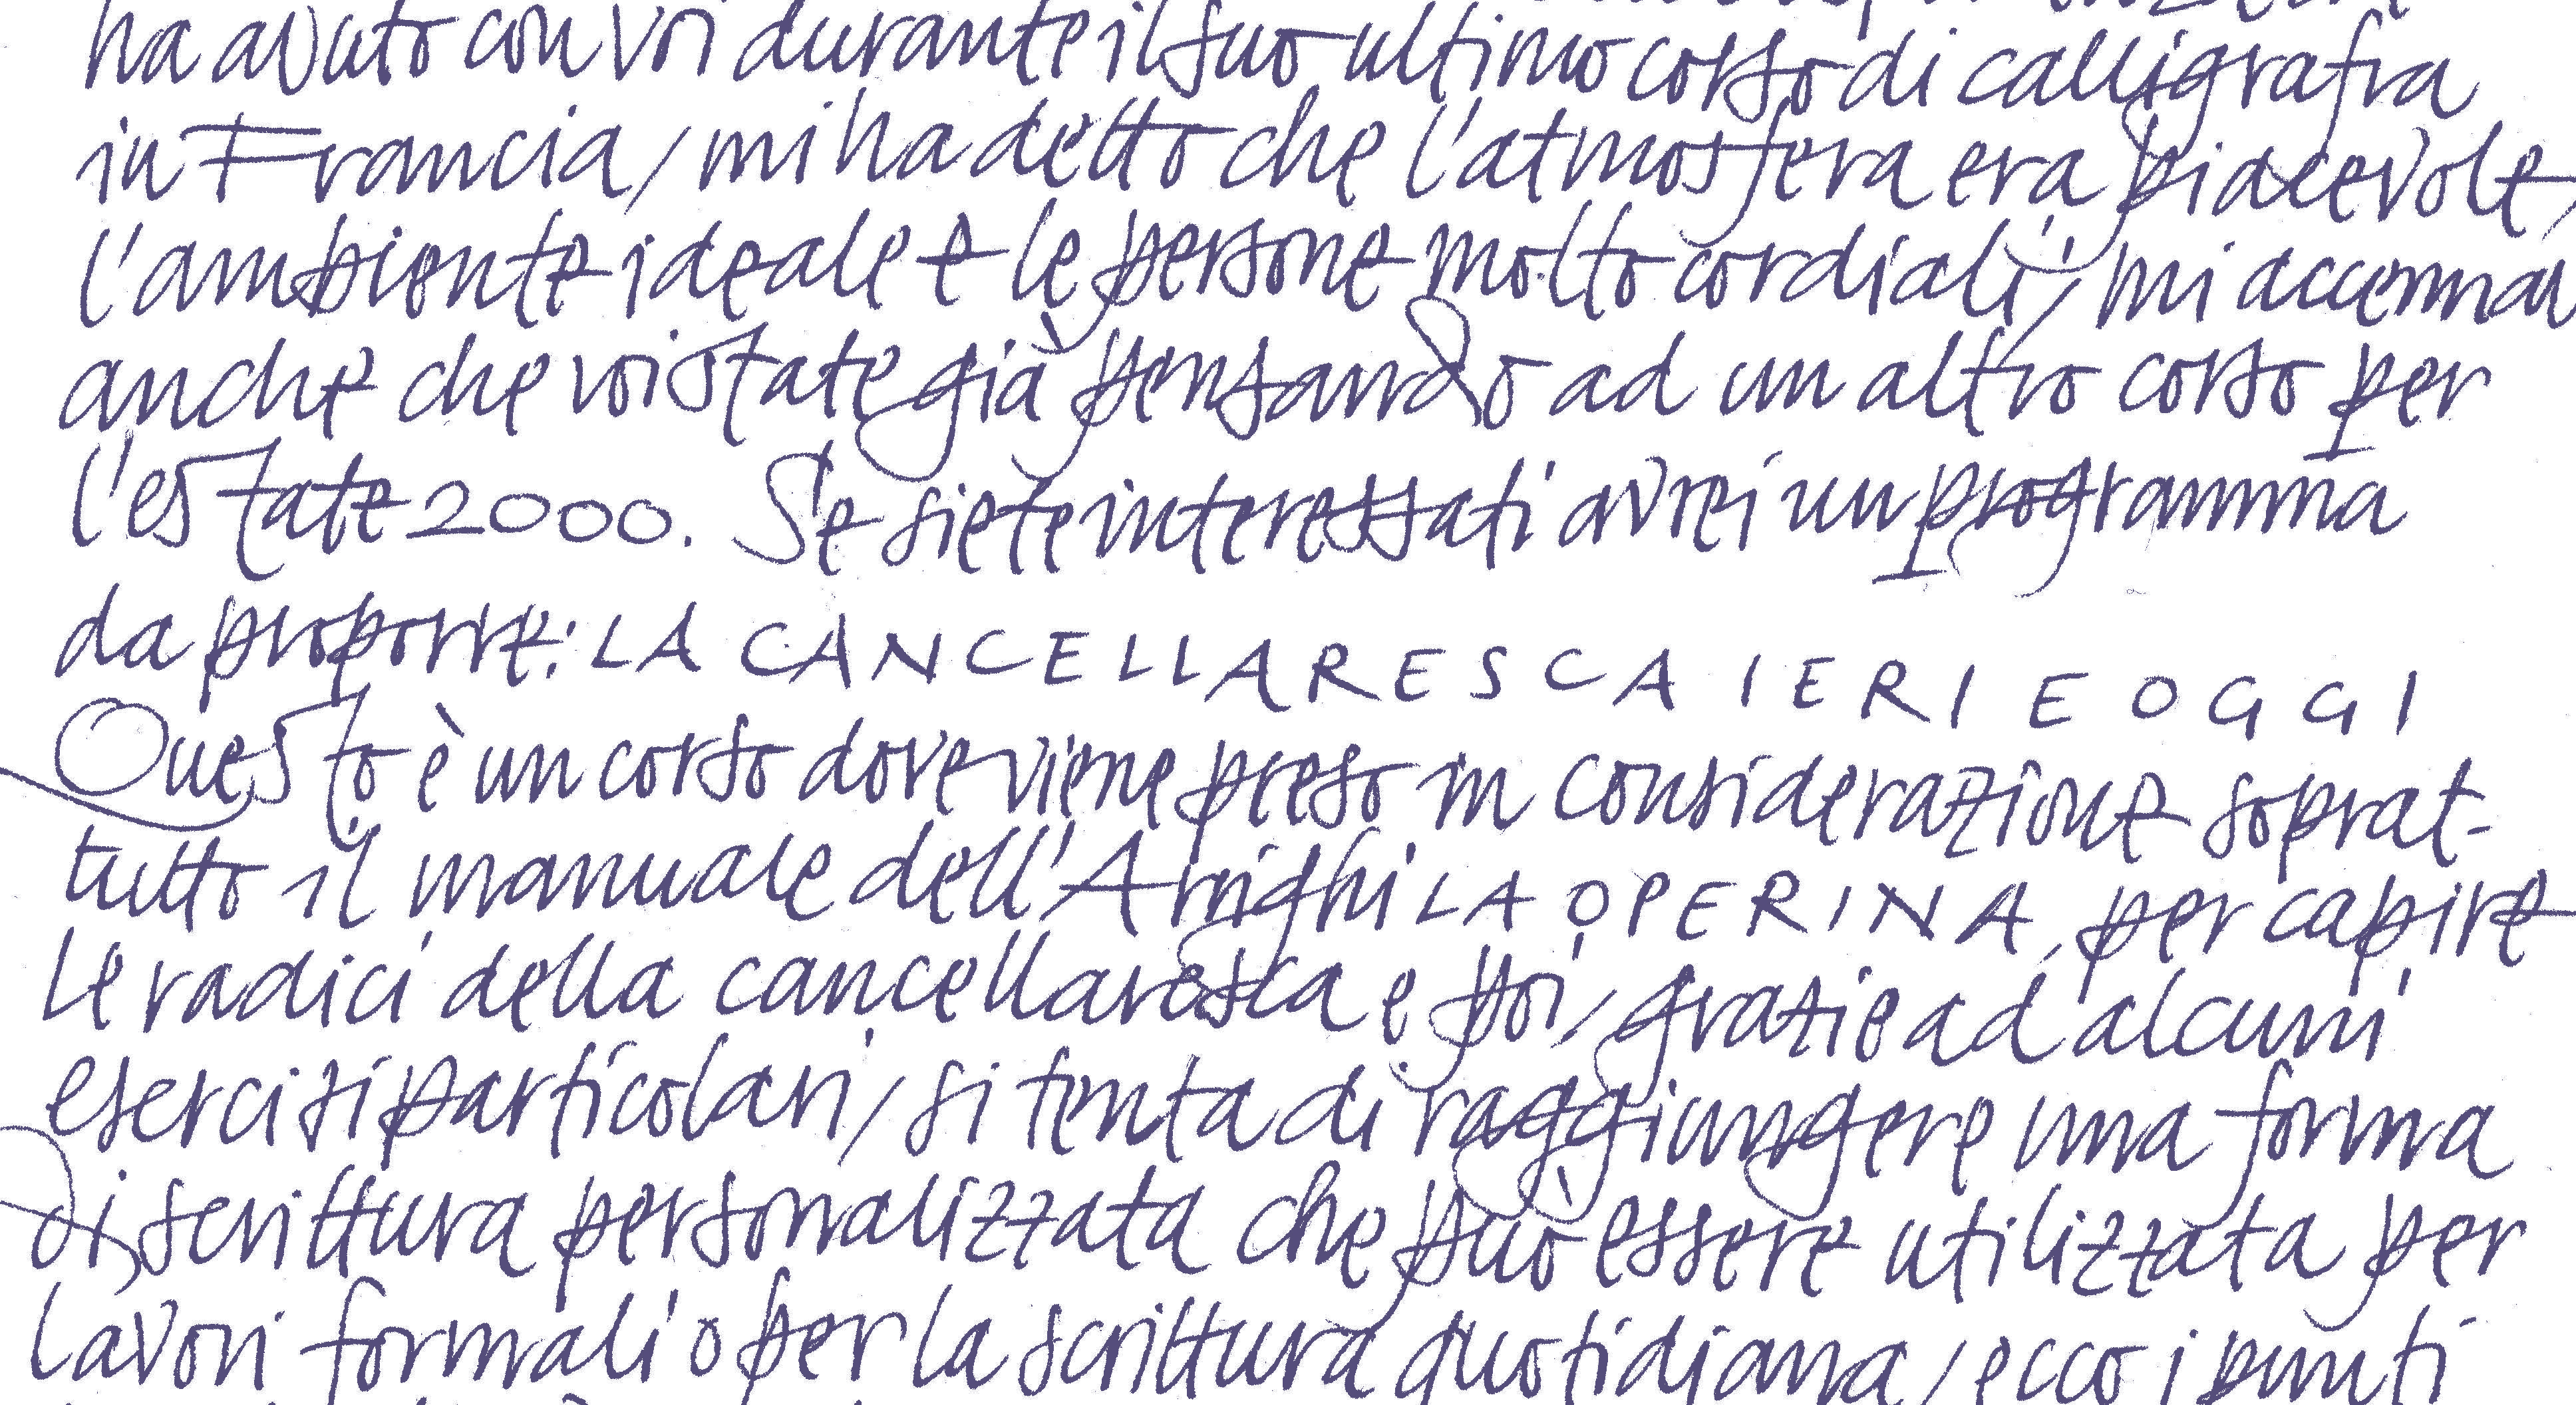 ha avuto con voi durante il suo ultimo corso di calligrafia
in Francia, mi ha detto che l'atmosfera era piacevole,
l'ambiente ideale e le persone molto cordiali, mi accennav
anche che voi state già pensando ad un altro corso per
l'estate 2000. Se siete interessati avrei un programma
da proporre: LA CANCELLARESCA IERI E OGGI
Questo è un corso dove viene preso in considerazione soprat-
tutto il manuale dell'Arrighi LA OPERINA, per capire
le radici della cancellaresca e poi, grazie ad alcuni
esercizi particolari, si tenta di raggiungere una forma
di scrittura personalizzata che può essere utilizzata per
lavori formali o per la scrittura quotidiana, ecco i punti